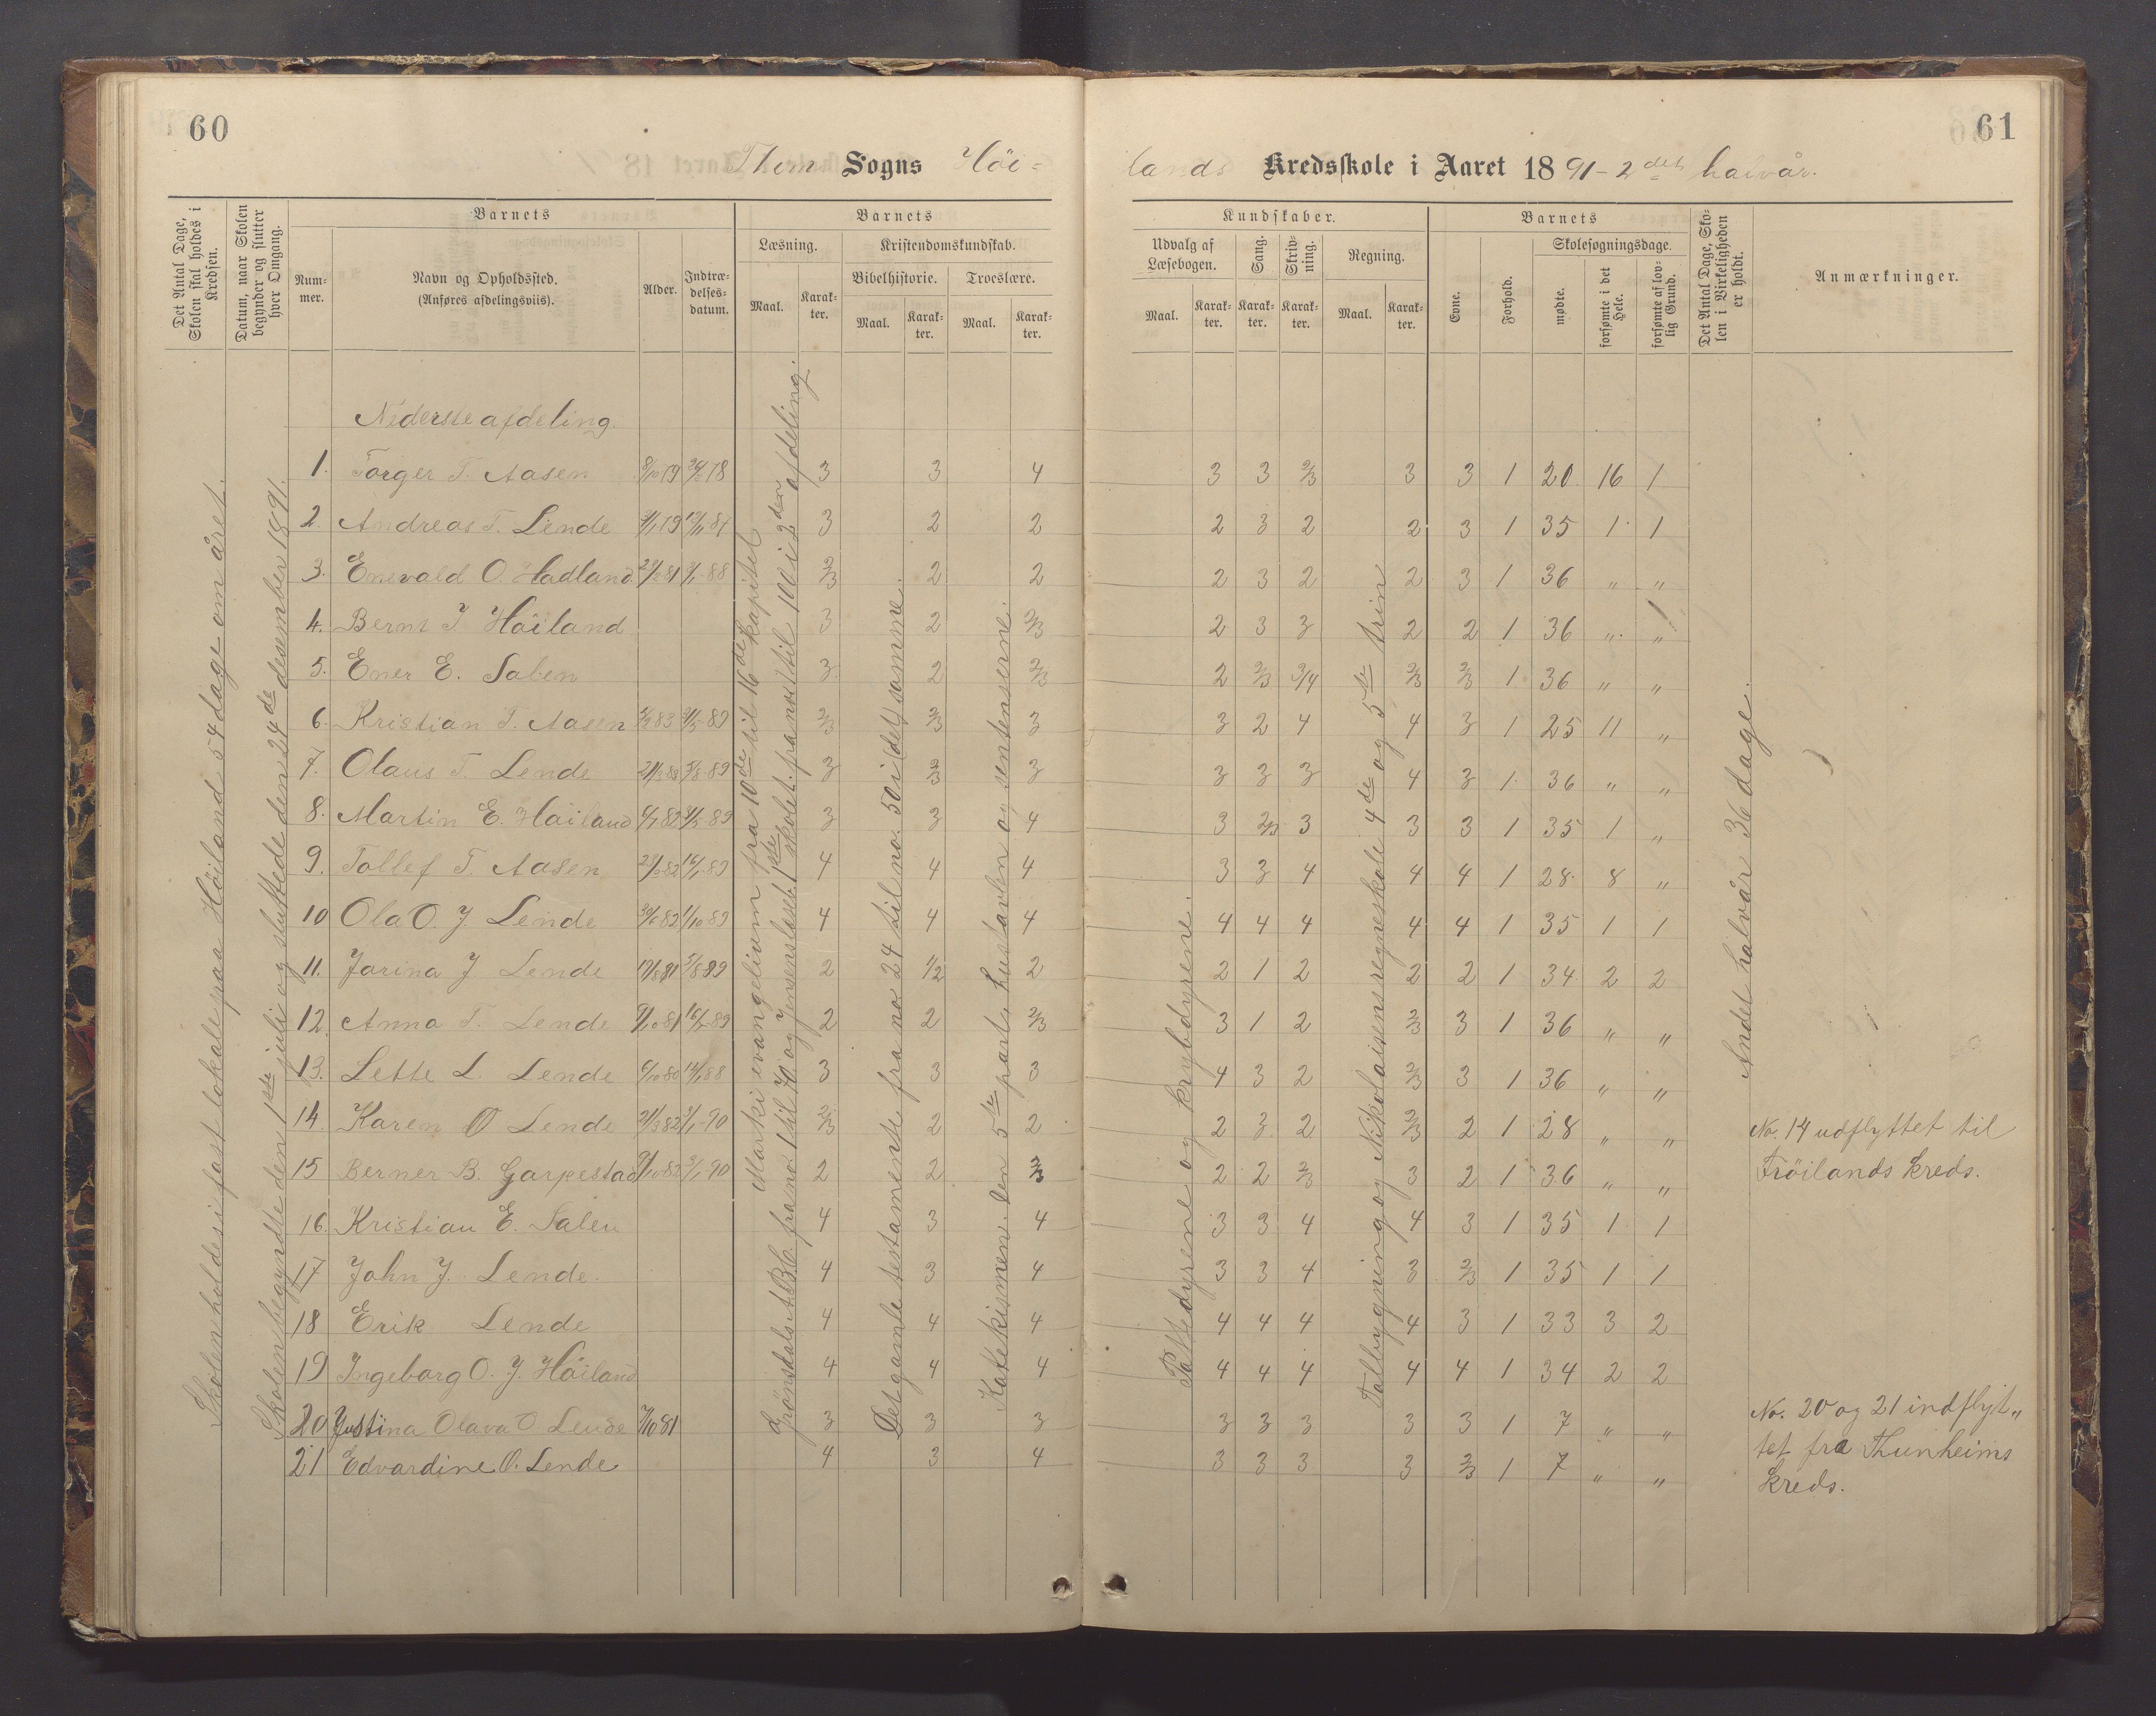 60
61
Sogns Höi-
lands Kredsskole i Aaret 1891-2det halvår.
Det Antal Dage, Skolen skal holdes i Kredsen.
Datum, naar Skolen begynder og slutter hver Omgang.
Barnets
Nummer.
Navn og Opholdssted.
(Anføres afdelingsviis).
Alder.
Indtrædelsesdatum.
Barnets
Læsning.
Maal.
Karakter.
Kristendomskundskab.
Bibelhistorie.
Maal.
Karakter.
Troeslære.
Maal.
Karakter.
Kundskaber.
Udvalg af Læsebogen.
Maal.
Karakter.
Sang.
Karakter.
Skrivning.
Karakter.
Regning.
Maal.
Karakter.
Barnets
Evne.
Forhold.
Skolesøgningsdage.
mødte.
forsømte i det Hele.
forsømte af lovlig Grund.
Det Antal Dage, Skolen i Virkeligheden er holdt.
Anmærkninger.
Skolen holdes i fast lokale paa Höiland 54 dage om året.
Skolen begyndte den 1ste juli og sluttede den 24de desember 1891.
Marki evangelium fra 10de til 16de kapitel
Gröndals A.B.C. fra no. 1 til 70 og Jensens læseb. 1ste skolet. fra no 1 til 100 i 2den afdeling.
Det gamle testamente fra no 24 til no. 50 i (det) samme.
Katekismen. Den 5te part, hustavlen og sentenserne.
Pattedyrene og krybdyrene.
Talbygning og Nikolaisens regneskole 4de og 5te trin
Andet halvår 36 dage.
Nederste afdeling.
1. Torger T. Aasen 8/10 79 78 3 3 4 3 3 2/3 3 3 1 20 16 1
2. Andreas T. Lende 79 87 3 2 2 2 3 2 2 3 1 35 1 1
3. Enevald O. Hadland 81 88 2/3 2 2 2 3 2 2 3 1 36 " "
4. Bernt T Höiland 3 2 2/3 2 3 3 2 2 1 36 " "
5. Ener E. Salen 3 2 2/3 2 2/3 3/4 2/3 2/3 1 36 " "
6. Kristian T. Aasen 83 89 2/3 2/3 3 3 2 4 4 3 1 25 11 "
7. Olaus T. Lende 89 3 2/3 3 3 3 3 4 3 1 36 " "
8. Martin E. Höiland 89 3 3 4 3 2/3 3 3 3 1 35 1 "
9. Tollef T. Aasen 82 89 4 4 4 3 3 4 4 4 1 28 8 "
10 Ola O. J. Lende 30/6 82 1/10 89 4 4 4 4 4 4 4 4 1 35 1 1
11. Jorina J Lende 81 89 2 1/2 2 2 1 2 2 2 1 34 2 2
12. Anna T. Lende 81 89 2 2 2/3 3 1 2 2/3 3 1 36 " "
13. Lette L. Lende 6/10 80 88 3 3 3 4 3 2 2/3 3 1 36 " "
14. Karen O Lende 21/3 82 90 2/3 2 2 2 3 2 2/3 2 1 28 " " No. 14 udflyttet til
15 Berner B. Garpestad 82 90 2 2 2/3 2 2 2/3 3 2 1 36 " " Fröilands kreds.
16. Kristian E. Salen 4 3 4 3 3 4 4 3 1 35 1 1
17 John J. Lende. 4 3 4 3 3 4 3 2/3 1 35 1 1
18 Erik Lende 4 4 4 4 4 4 4 3 1 33 3 2
19 Ingeborg O. J. Höiland 4 4 4 4 4 4 4 4 1 34 2 2
20 Justina Olava O. Lende 7/10 81 3 3 3 3 3 3 3 3 1 7 " " No. 20 og 21 indflyt„
21 Edvardine O. Lende 4 3 4 3 3 3 3 2/3 1 7 " " tet fra Thunheims
kreds.